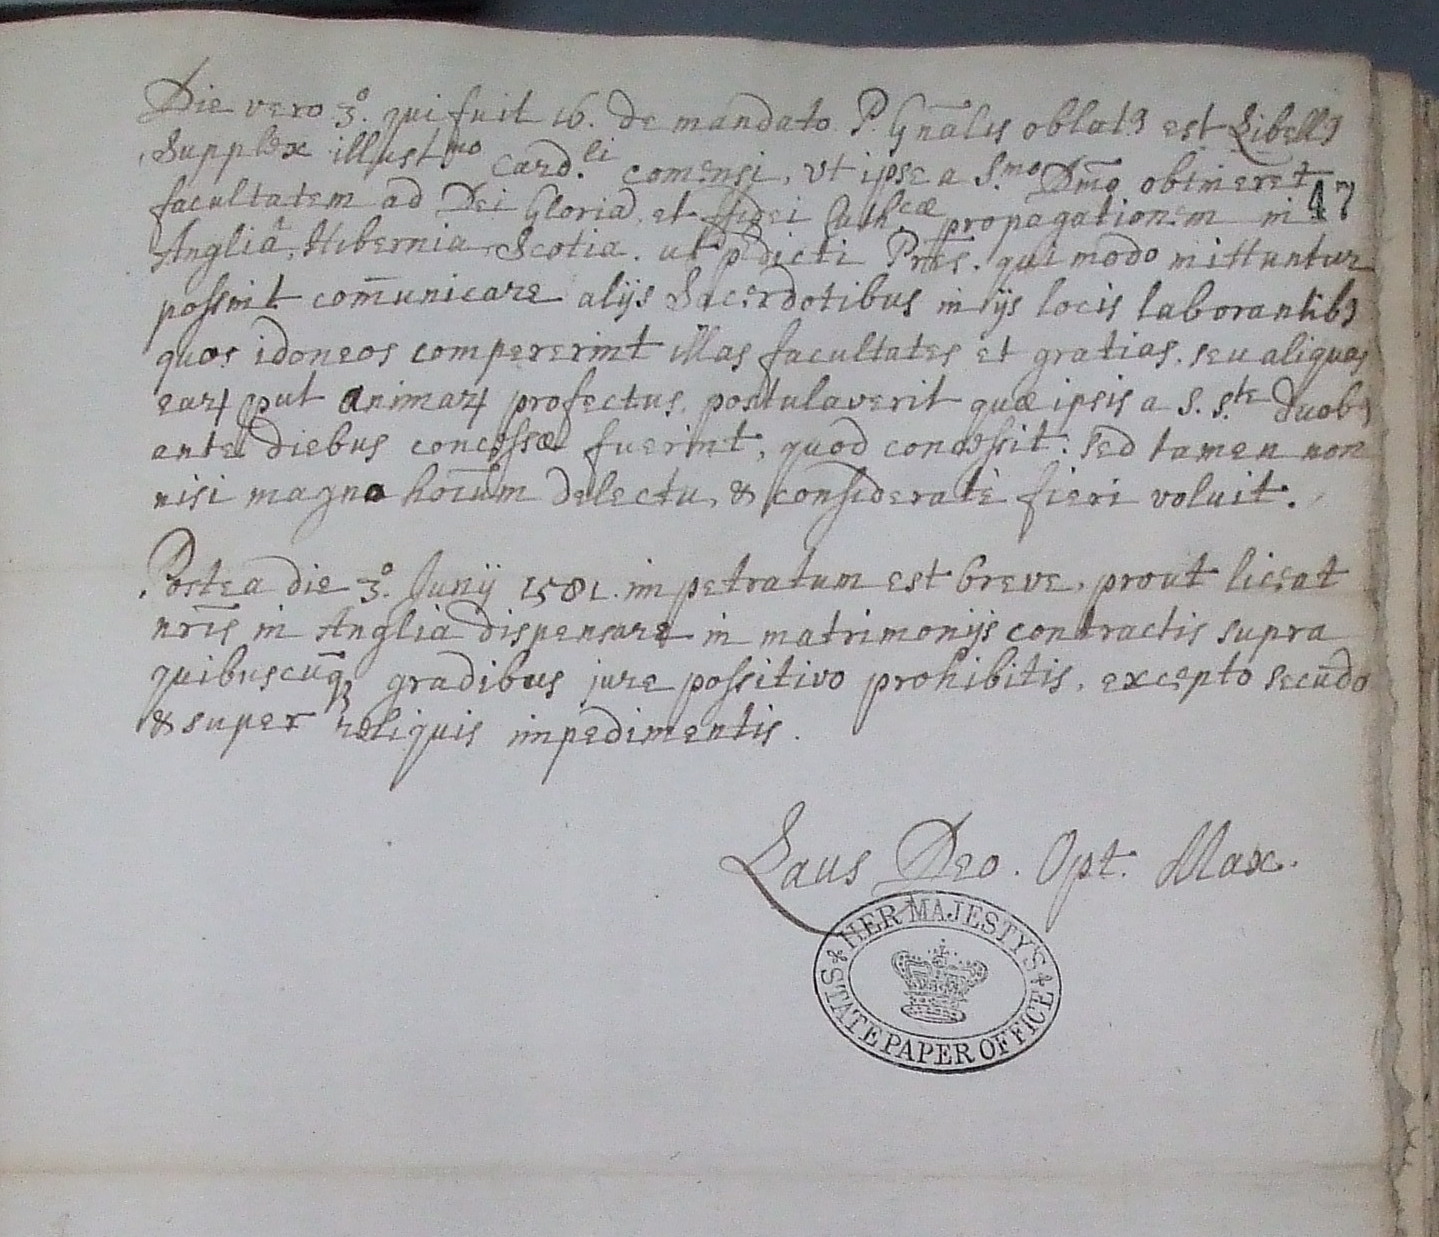 Die vero 3.º qui fuit 16. de mandato P. Gñalis oblatꝰ est Libellꝰ
Supplex illustmo Card.li comensi, vt ipse a S.mo Dm̃o obtineret
47
facultatem ad Dei Gloriã, et ffidei Cath.cæ propagationem in
Angliâ, Hibernia, Scotia. ut p̃dicti P̃res. qui modo mittuntur
possint com̃unicare alijs Sacerdotibus in ijs locis laborantibꝰ
quos idoneos compererint illas facultates et gratias. seu aliquas
earꝝ ꝓut animarꝝ profectus postulaverit quæ ipsis a S. S.te duobꝰ
ante diebus concessæ fuerint, quod concessit: sed tamen non
nisi magno horũm delectu, & consideratè fieri voluit.
Postea die 3.º Junij 1581. impetratum est breve, prout liceat
nr̃is in Anglia dispensare in matrimonijs contractis supra
quibuscũqꝫ gradibus jure possitivo prohibitis, excepto secũdo
& super reliquis impedimentis.
Laus Deo. Opt. Max.
HER MAJESTY'S
STATE PAPER OFFICE